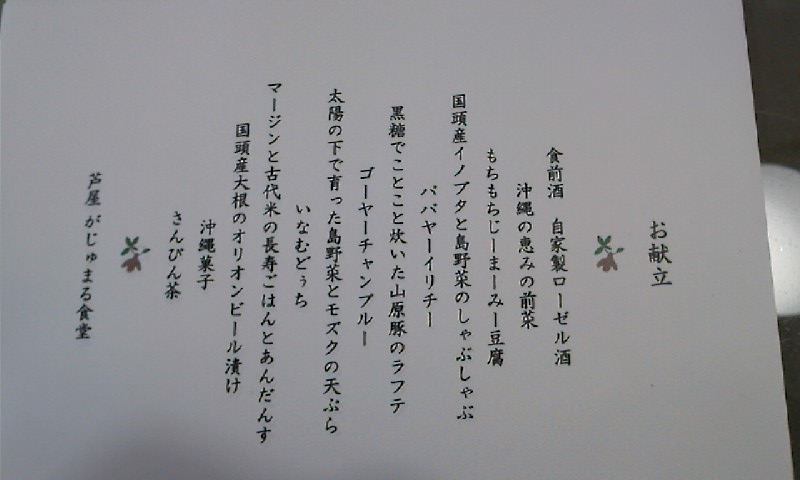 お献立
食前酒　自家製ローゼル酒
沖縄の恵みの前菜
もちもちじーまーみー豆腐
国頭産イノブタと島野菜のしゃぶしゃぶ
パパヤーイリチー
黒糖でことこと炊いた山原豚のラフテ
ゴーヤーチャンプルー
太陽の下で育った島野菜とモズクの天ぷら
いなむどぅち
マージンと古代米の長寿ごはんとあんだんす
国頭産大根のオリオンビール漬け
沖縄菓子
さんぴん茶
芦屋 がじゅまる食堂